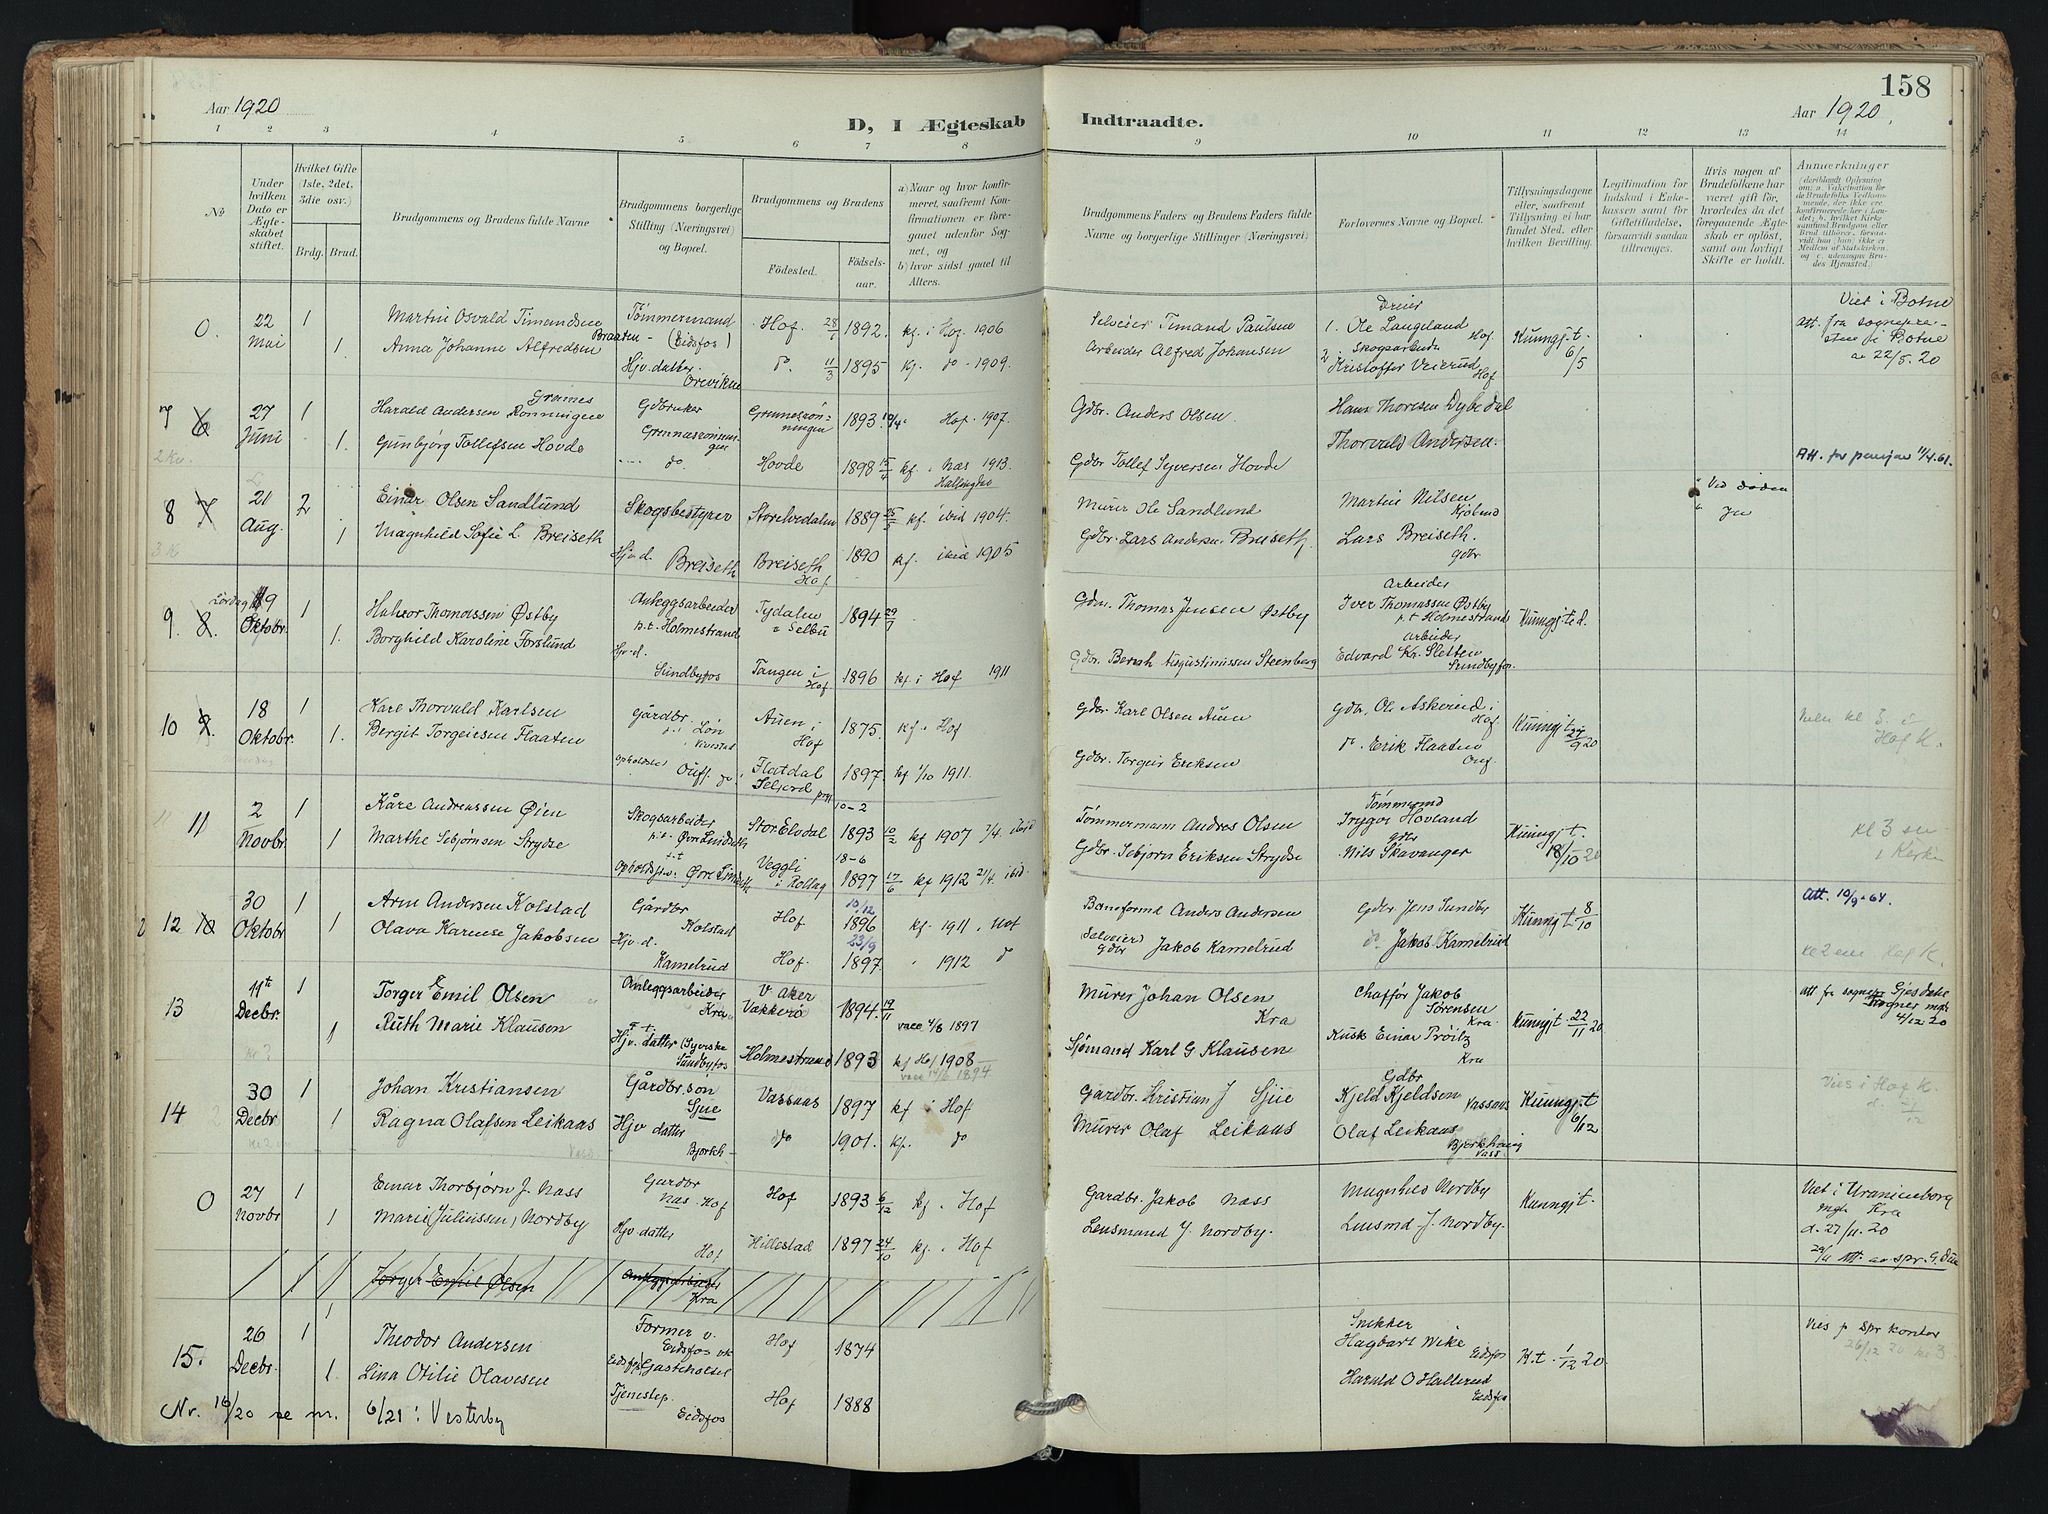 158
Aar 1920
Aar 1920
D, I Ægteskab Indtraadte.
1 2 3 4 5 6 7 8 9 10 11 12 13 14
No
Under hvilken Dato er Ægteskabet stiftet.
Hvilket Gifte (1ste, 2det, 3die osv.)
Brdg. Brud.
Brudgommens og Brudens fulde Navne
Brudgommens borgerlige Stilling (Næringsvei) og Bopæl.
Brudgommens og Brudens
Födested.
Födselsaar.
a) Naar og hvor konfirmeret, saafremt Konfirmationen er foregaaet udenfor Sognet, og
b) hvor sidst gaaet til Alters.
Brudgommens Faders og Brudens Faders fulde Navne og borgerlige Stillinger (Næringsvei)
Forlovernes Navne og Bopæl.
Tillysningsdagene eller, saafremt Tillysning ei har fundet Sted, efter hvilken Bevilling.
Legitimation for Indskud i Enkekassen samt for Giftetilladelse, forsaavidt saadan tiltrænges.
Hvis nogen af Brudefolkene har været gift før, hvorledes da det foregaaende Ægteskab er opløst, samt om lovligt Skifte er holdt.
Anmærkninger
0. 22 Mai 1 Martin Osvald Timandsen Braaten Tømmermand (Eidsfos) Hof 28/7 1892. kf. i Hof 1906 Selveier Timand Paulsen Dreier 1. Ole Langeland Hof Kunngj. t. 6/5 Viet i Botne
1. Anna Johanne Alfredsen Hjv. datter Orevikene do. 11/3 1895 kf. do 1909. Arbeider Alfred Johansen 2 Skogsarbeider Kristoffer Veierud Hof Att. fra sognepresten i Botne av 22/5. 20
7 6 27 Juni 1 Harald Andersen Grænnes Rønningen Gdbruker Grennesrønningen 1893 Hof. 1907. Gdbr. Anders Olsen Hans Thoresen Dybedal
2 Kv. 1. Gunbjørg Tollefsen Hovde do. Hovde 1898 15/4 kf. i Nas 1913. Hallingdal Gdbr. Tollef Syversen Hovde Thorvald Andersen. Att. for pensjon 11/4.61.
8 7 21 Aug. 2 Einar Olsen Sandlund Skogsbestyrer Storelvedalen 1889 25/5 kf. ibid 1904. Murer Ole Sandlund Martin Nilsen a Ved døden
3 K 1 Magnhild Sofie L. Breiseth Hjv. d. Breiseth Breiseth Hof 1890 kf. ibid 1905 Gdbr. Lars Andersen Breiseth. Lars Breiseth. Gdbr. b. Ja
9. 8. Lördag 9 Oktobr. 1 Halvor Thomassen Østby Anleggsarbeider p.t. Holmestrand Tydalen i Selbu 1894 29/7 Gdm. Thomas Jensen Østby Arbeider Iver Thomassen Østby p.t Holmestrand Kunngjted.
1. Borghild Karoline Forslund Hjv. d. Sundbyfos Tangen i Hof 1896 kf. i Hof 1911 Gdbr. Bernh Augustinussen Steenberg Arbeider Edvard Kr. Sletten Sundbyfos.
10 9 18 Oktobr. 1 Karl Thorvald Karlsen Gårdbr. Auen i Hof 1875. kf. i Hof Gdbr. Karl Olsen Auen Gdbr. Ole Askerud i Hof Kunngj t. 24/9 20
1. Bergit Torgeirsen Flaaten Flatdal Seljord 1897. kf 1/10 1911. Gdbr. Torgeir Eriksen do. Erik Flaaten Hof K.
11 2 Novbr. 1 Kåre Andreassen Øien Skogsarbeider p.t. Øvre Lindseth Stor. Elvdal 10-2 1893 10/2 kf 1907 7/4. ibid Tømmermann Andreas Olsen Tømmermd Trygve Hovland Kunngj t. 18/10 20 kl 3 em
1 Marthe Sebjørnsen Strydse Opholdsst. Øvre Lindseth Veggli i Rollag 18-6 1897 17/6 kf 1912 21/4. ibid. Gdbr. Sebjørn Eriksen Strydse Gdbr Nils Skavanger i Kirken
12 10 30 Oktobr 1 Arne Andersen Kolstad Gårdbr Kolstad Hof 10/12 1896 kf. 1911. Hof Baneformd Anders Andersen Gdbr. Jens Sundby Kunngj t. 8/10 Att. 10/9-64.
1 Olava Karense Jakobsen Hjv. d. Kamelrud Hof. 23/9 1897. " 1912 do Selveier Gdbr Jakob Kamelrud do. Jakob Kamelrud kl 2 em Hof K.
13 11te Decbr. 1 Torger Emil Olsen Anleggsarbeider Kra V. Aker Vækkerø 1894. 19/11 vacc 4/6 1897 Murer Johan Olsen Kra Chaffør Jakob Sørensen Kra. Kunngj t. 22/11 20 4/12 20
1 Ruth Marie Klausen Hjv. datter Sundbyfos Holmestrand 1893 kf Hof 1908 vacc 14/6 1894 Sjømand Karl G Klausen Kusk Einar Trøitz Kra
14 30 Decbr 1 Johan Kristiansen Gårdbr. søn Sjue Vassaas 1897 kf i Hof Gardbr. Kristian J Sjue Gdbr Kjeld Kjeldsen Vassaas Kunngj. t 6/12 Vies i Hof K.
1 Ragna Olafsen Leikaas Hjv datter Bjørkh do 1901. kf. do Murer Olaf Leikaas Olaf Leikaas Bjørkhaug Vass.
0 27 Novbr 1 Einar Thorbjørn J. Nass Gardbr Nas. Hof Hof 1893 6/12 kf. i Hof Gardbr. Jakob Nass Magnhild Nordby Kunngj t. Viet i Uranienborg mgh. Kra
1 Marie (Juliussen) Nordby Hjv. datter Hof Hillestad 1897 24/10 kf. i Hof Lensmand J. Nordby. Lensmd J. Nordby. d. 27/11. 20
29/11 Att. av spr. G. Due
Torger Emil Olsen Anleggsarbeider Kra
15. 26 Decbr. 1 Theodor Andersen Former v. Eidsfos vk Hof 1874 Snikker Hagbart Wike Eidsfos K.t. 1/12 20. Vies p spr kontor
1. Lina Otilie Olavesen Eidsfos Gastehotel Tjenestep. Eidsfos Hof 1888 Harald O Hallerud Eidsfos 26/12 20 kl 3
Nr. 16/20 se nr. 6/21 : Vesterby